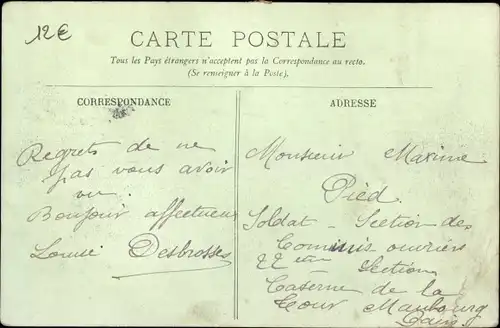 12€
CARTE POSTALE
Tous les Pays étrangers n'acceptent pas la Correspondance au recto.
(Se renseigner à la Poste).
CORRESPONDANCE
Regrets de ne
pas vous avoir
vu.
Bonjour affectueux
Louise Desbrosses
ADRESSE
Monsieur Maxime
Pied
Soldat - Section des
Commis ouvriers
22eme Section
Caserne de la
Tour Maubourg
Paris